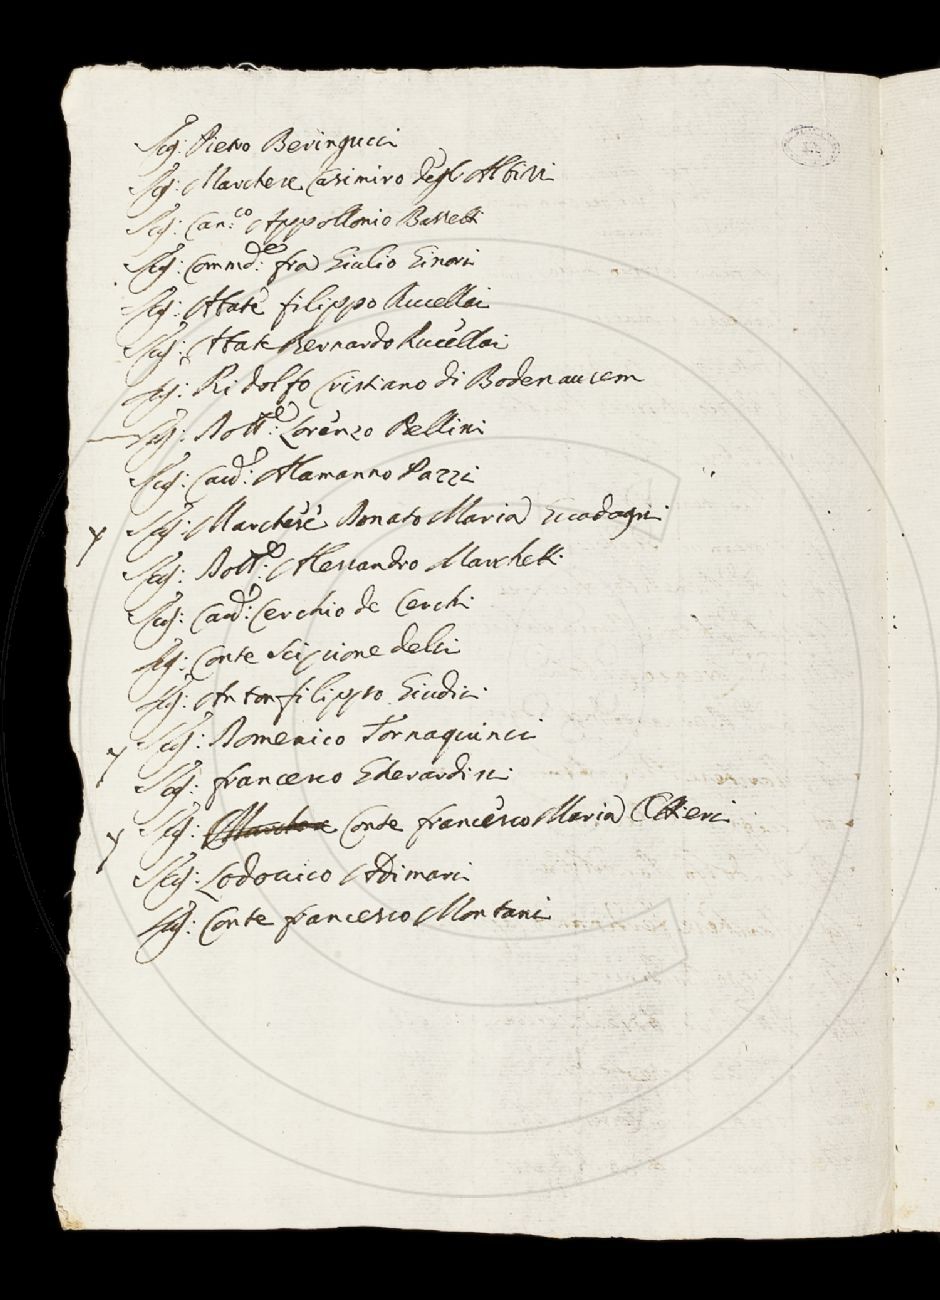 Sig: Pietro Beringucci
Sig: Marchese Casimiro degl Albizi
Sig: Can:co Appollonio Bassetti
Sig: Commd:e fra Giulio Ginori
Sig: Abate filippo Rucellai
Sig: Abate Bernardo Rucellai
Sig: Ridolfo Cristiano di Bodenausem
Sig: Dott:e Lorenzo Bellini
Sig: Cau:e Alamanno Pazzi
Sig: Marchese Donato Maria Guadagni
Sig: Dott:e Alessandro Marchetti
Sig: Cau:e Cerchio de Cerchi
Sig: Conte Scipione delci
Sig: Antonfilippo Giudici
Sig: Domenico Tornaquinci
Sig: francesco Ederardini
Sig: Marchese Conte francesco Maria Ottieri
Sig: Lodouico Adimari
Sig: Conte francesco Montani